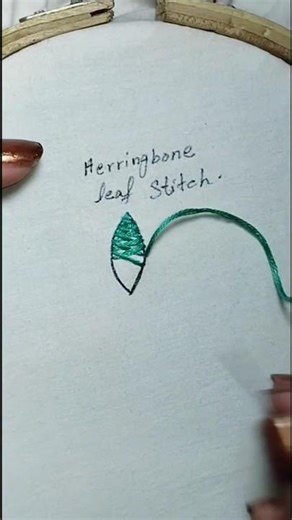 Herringbone
leaf Stitch.